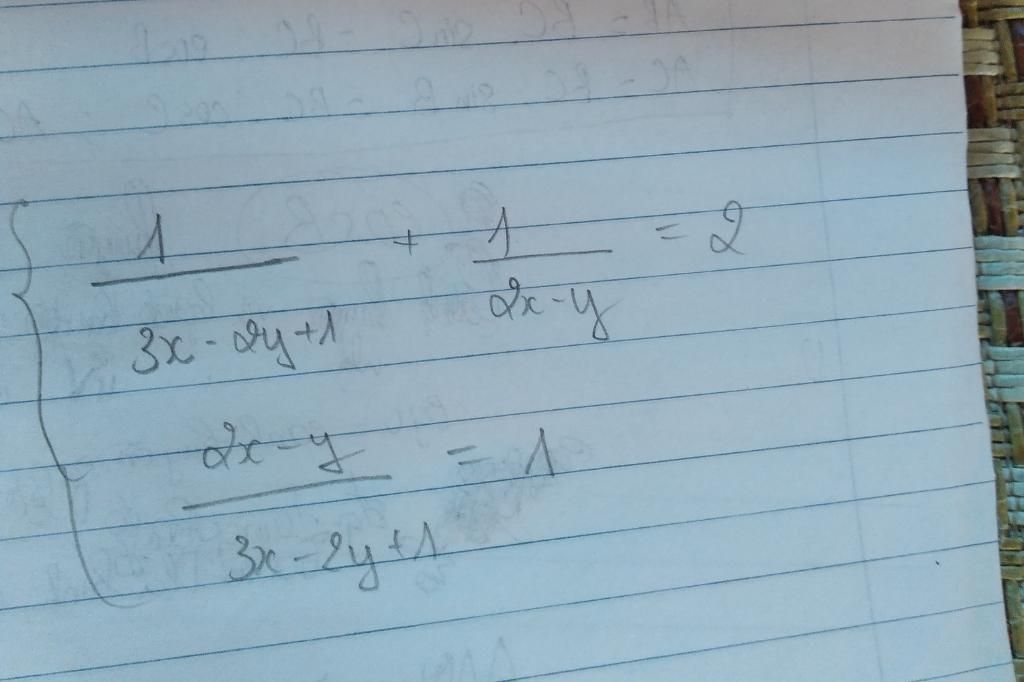 1/(3x-2y+1) + 1/(2x-y) = 2
(2x-y)/(3x-2y+1) = 1